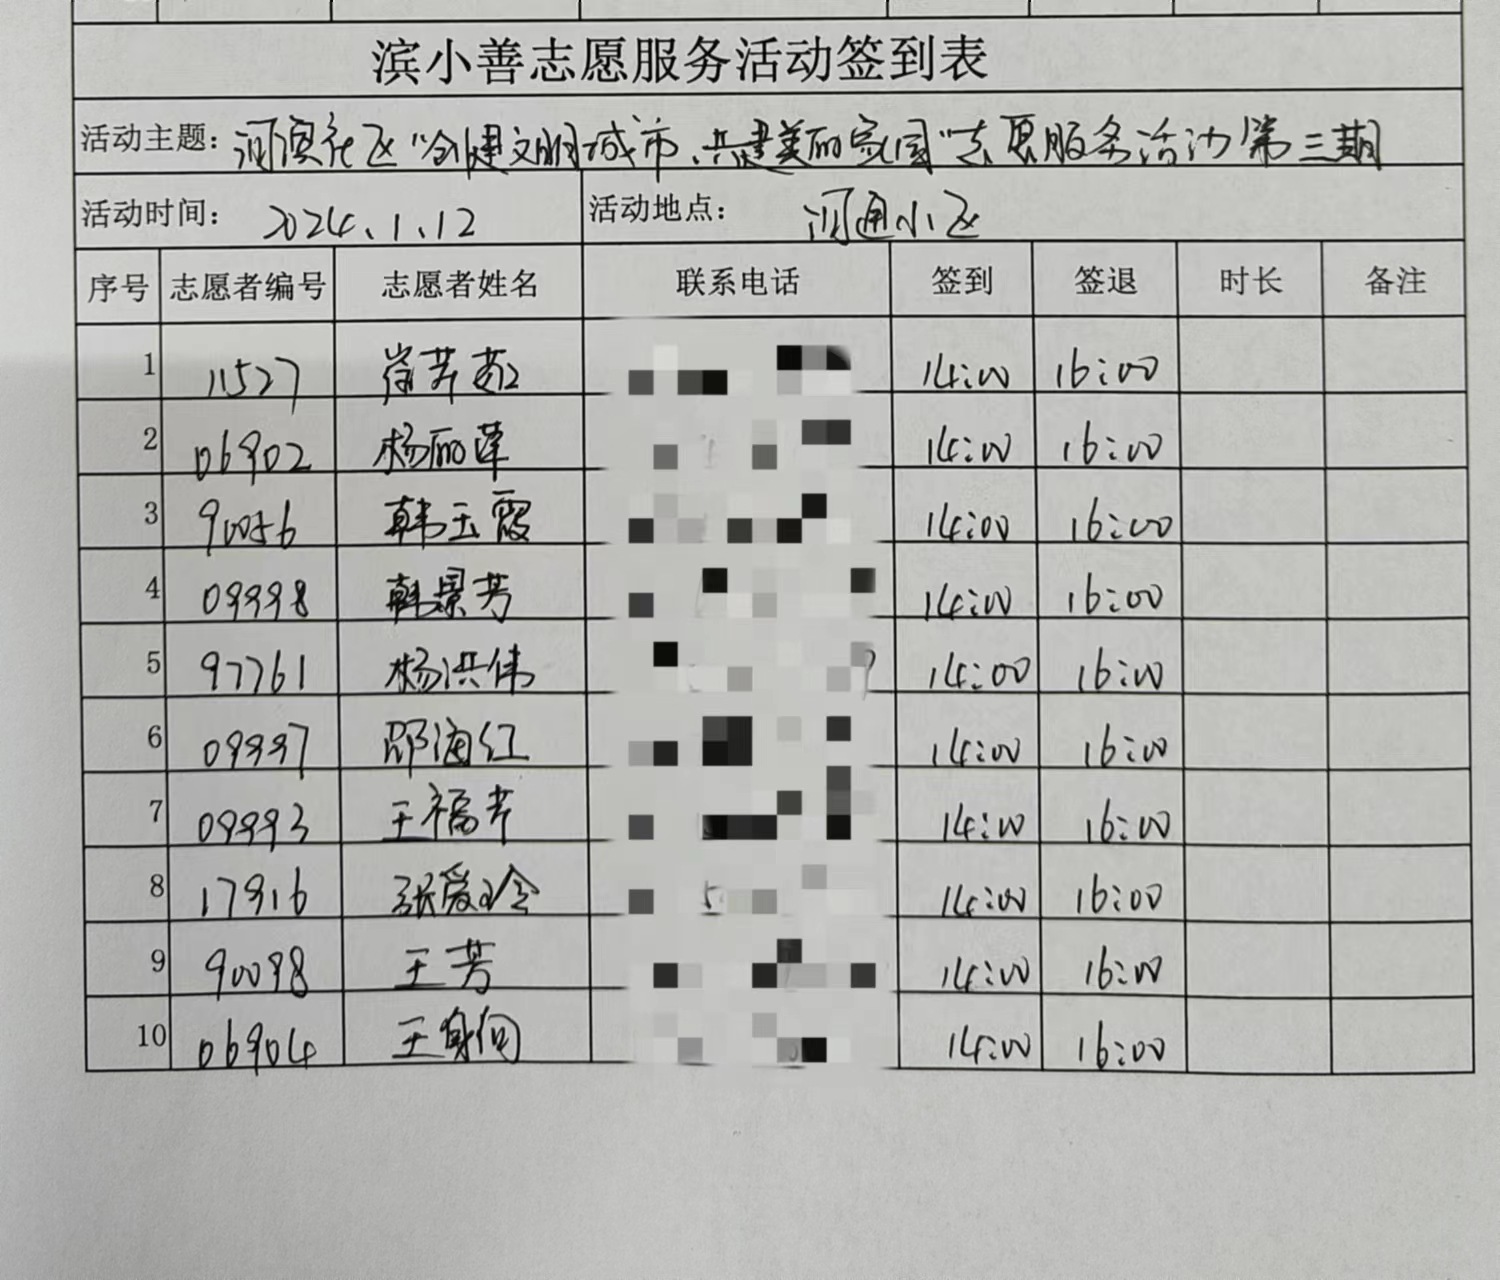 滨小善志愿服务活动签到表
活动主题: 河滨社区"创建文明城市、共建美丽家园"志愿服务活动第三期
活动时间: 2024.1.12 活动地点: 河通小区
序号 志愿者编号 志愿者姓名 联系电话 签到 签退 时长 备注
1 11527 14:00 16:00
2 06902 杨丽萍 14:00 16:00
3 90056 韩玉霞 14:00 16:00
4 09998 韩景芳 14:00 16:00
5 97761 杨洪伟 14:00 16:00
6 09997 邵海红 14:00 16:00
7 09993 王福芹 14:00 16:00
8 17916 张爱玲 14:00 16:00
9 90098 王芳 14:00 16:00
10 06904 王 14:00 16:00